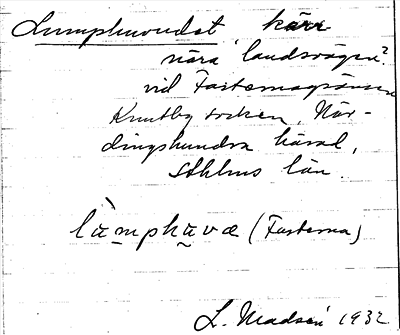 Lumphuvudet kärr
nära landsvägen?
vid Fasternagränsen
Knutby socken, När-
dinghundra härad,
Sthlms län.
lùmphuvæ (Fasterna)
L. Madsén 1932